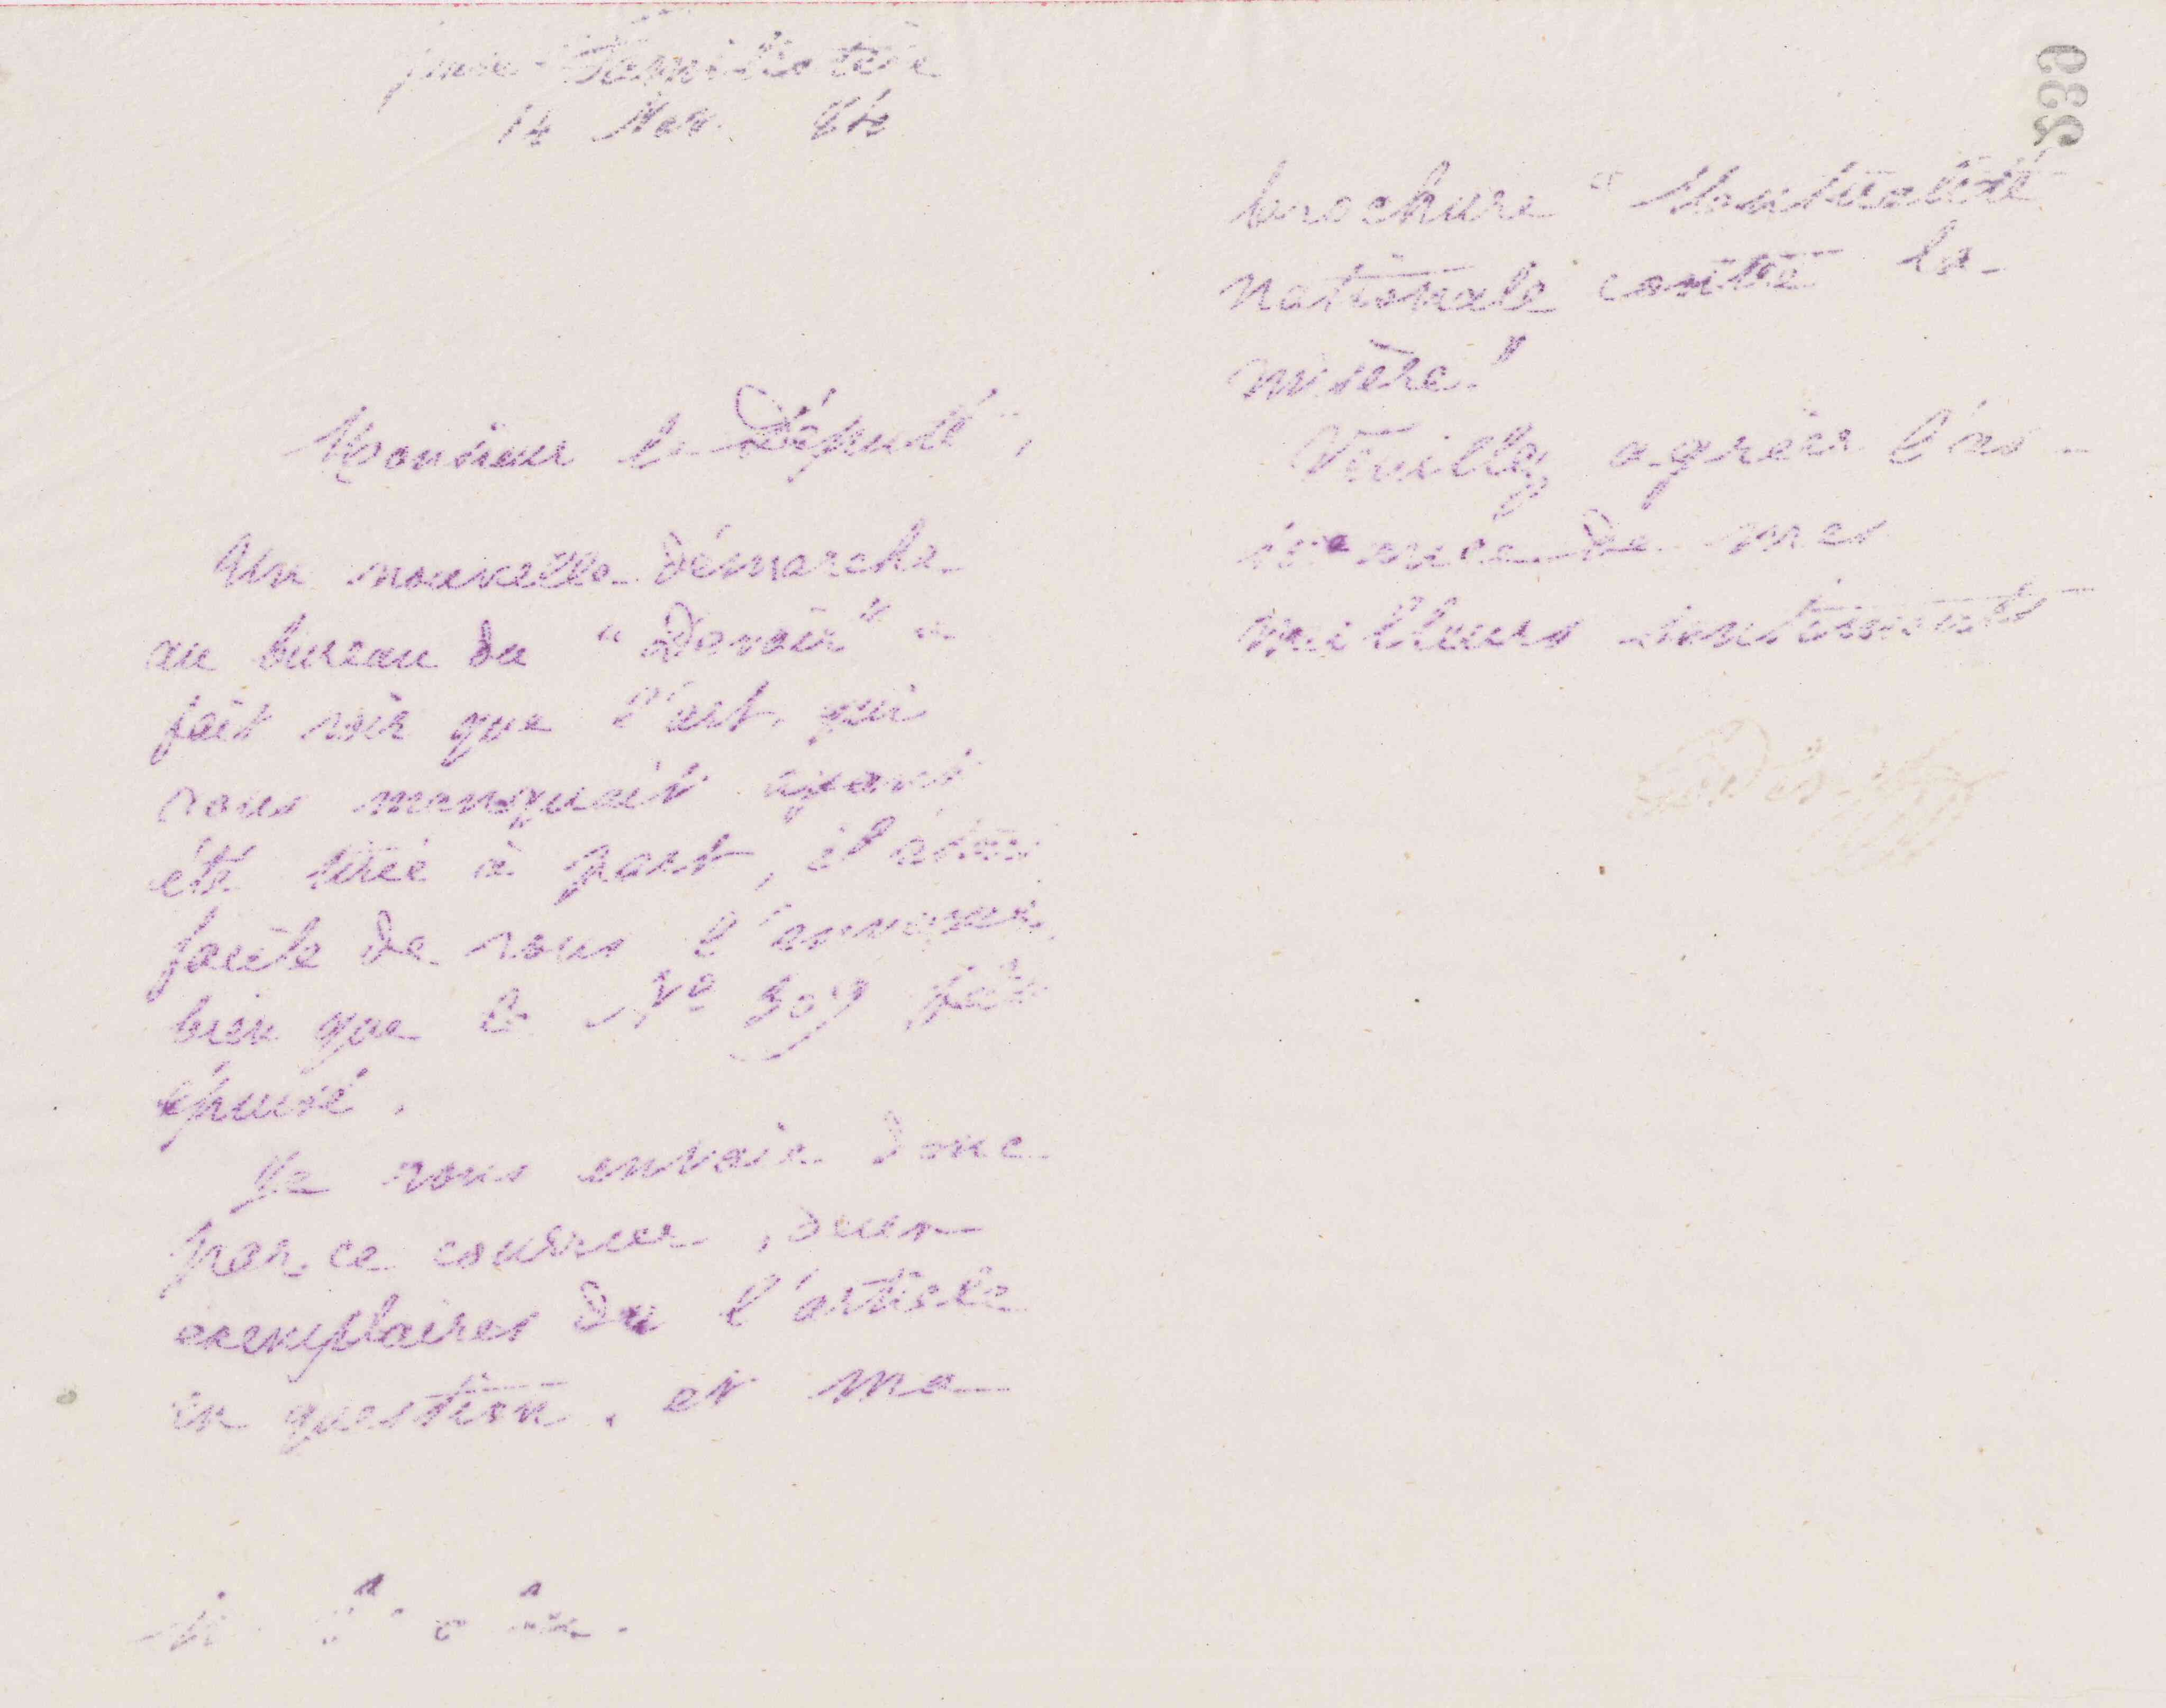 Guise Familistère
14 Nov. 84
Monsieur le Député,
Un nouvelle démarche
au bureau du "Devoir" a
fait voir que l'art. qui
vous manquait ayant
été tiré à part, il était
facile de vous l'envoyer
bien que le No 309 fût
épuisé.
Je vous envoie donc
par ce courrier, deux
exemplaires de l'article
en question, et ma
brochure "Mutualité
nationale contre la
misère."
Veuillez agréer l'as-
surance de mes
meilleurs sentiments
Godin
539